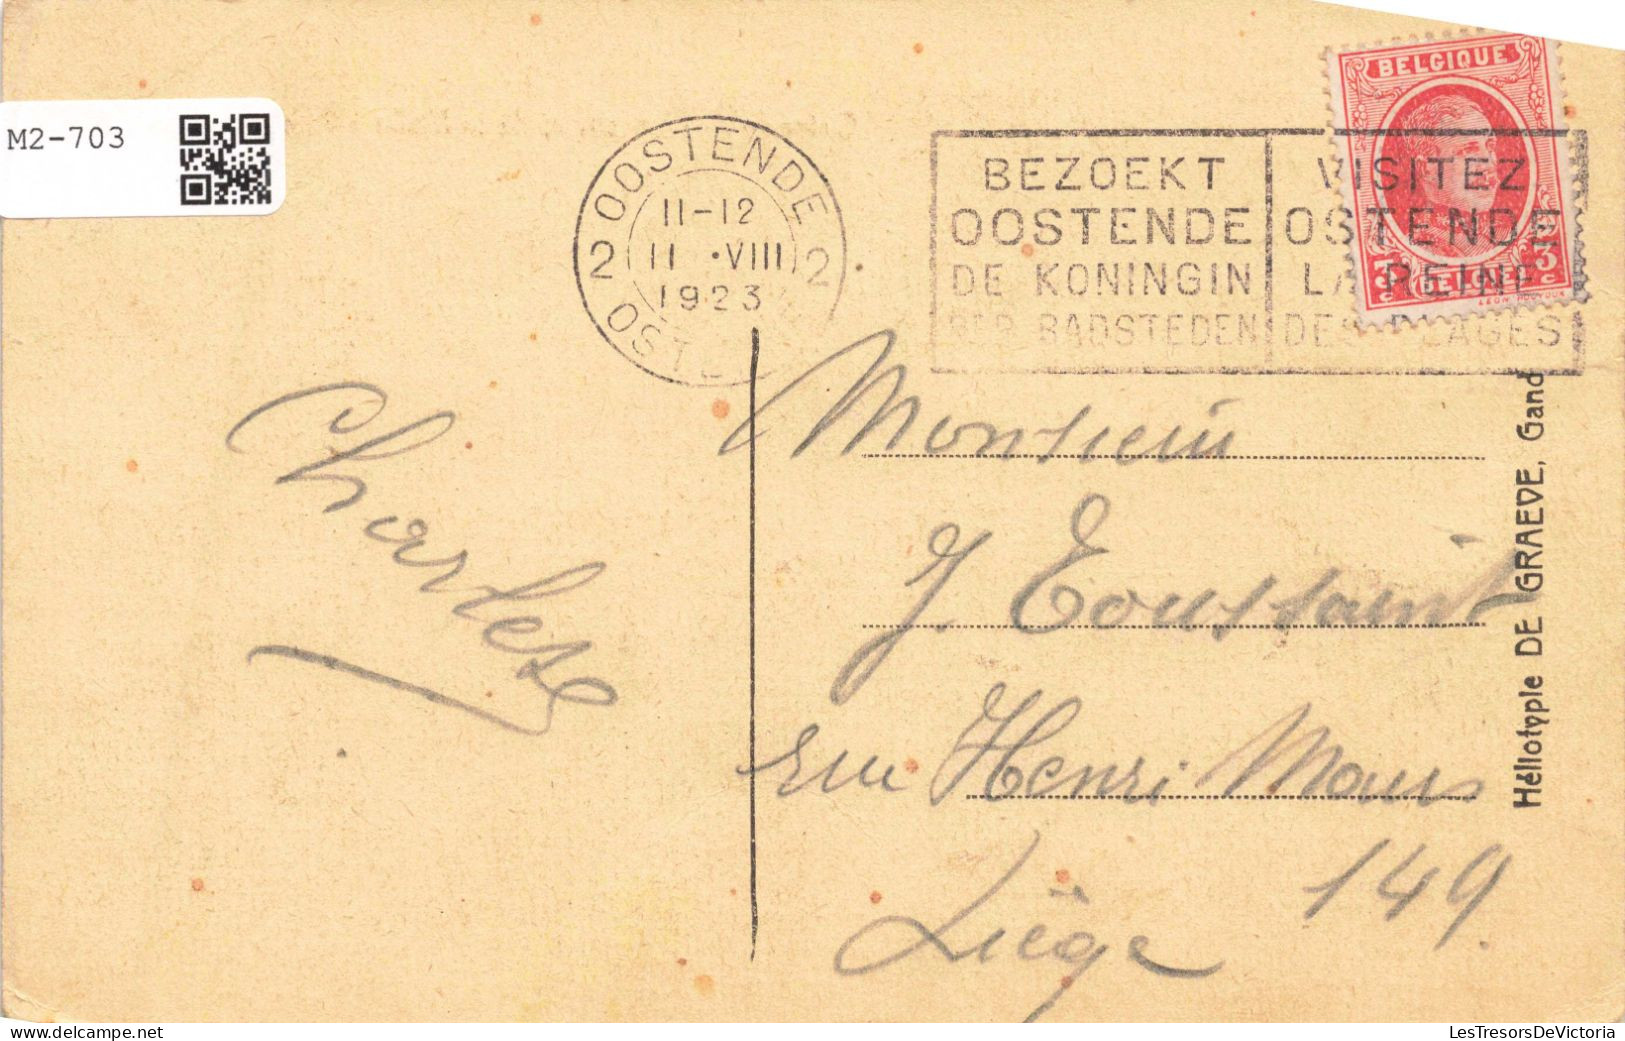 M2-703
OOSTENDE
2 2
11-12
11 •VIII
1923
OST
BEZOEKT
OOSTENDE
DE KONINGIN
DER BADSTEDEN
VISITEZ
OSTENDE
LA REINE
DES PLAGES
BELGIQUE
3c 3c
BELGIË
Charles
Monsieur
J. Toussaint
rue Henri Maus
149.
Liège
Héliotypie DE GRAEVE, Gand
LesTresorsDeVictoria